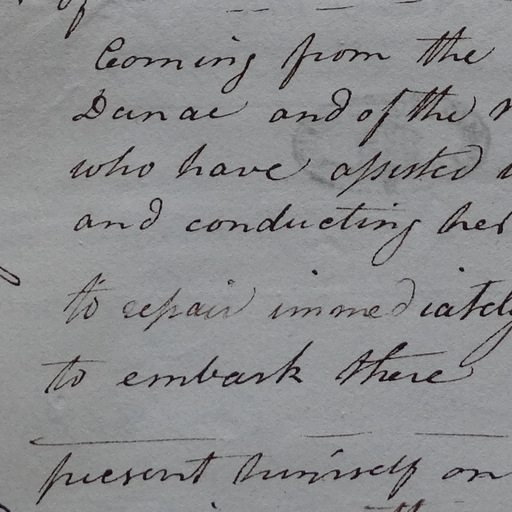 Coming from the
Danae and of the
who have assisted
and conducting her
to repair immediately
to embark there
present himself on